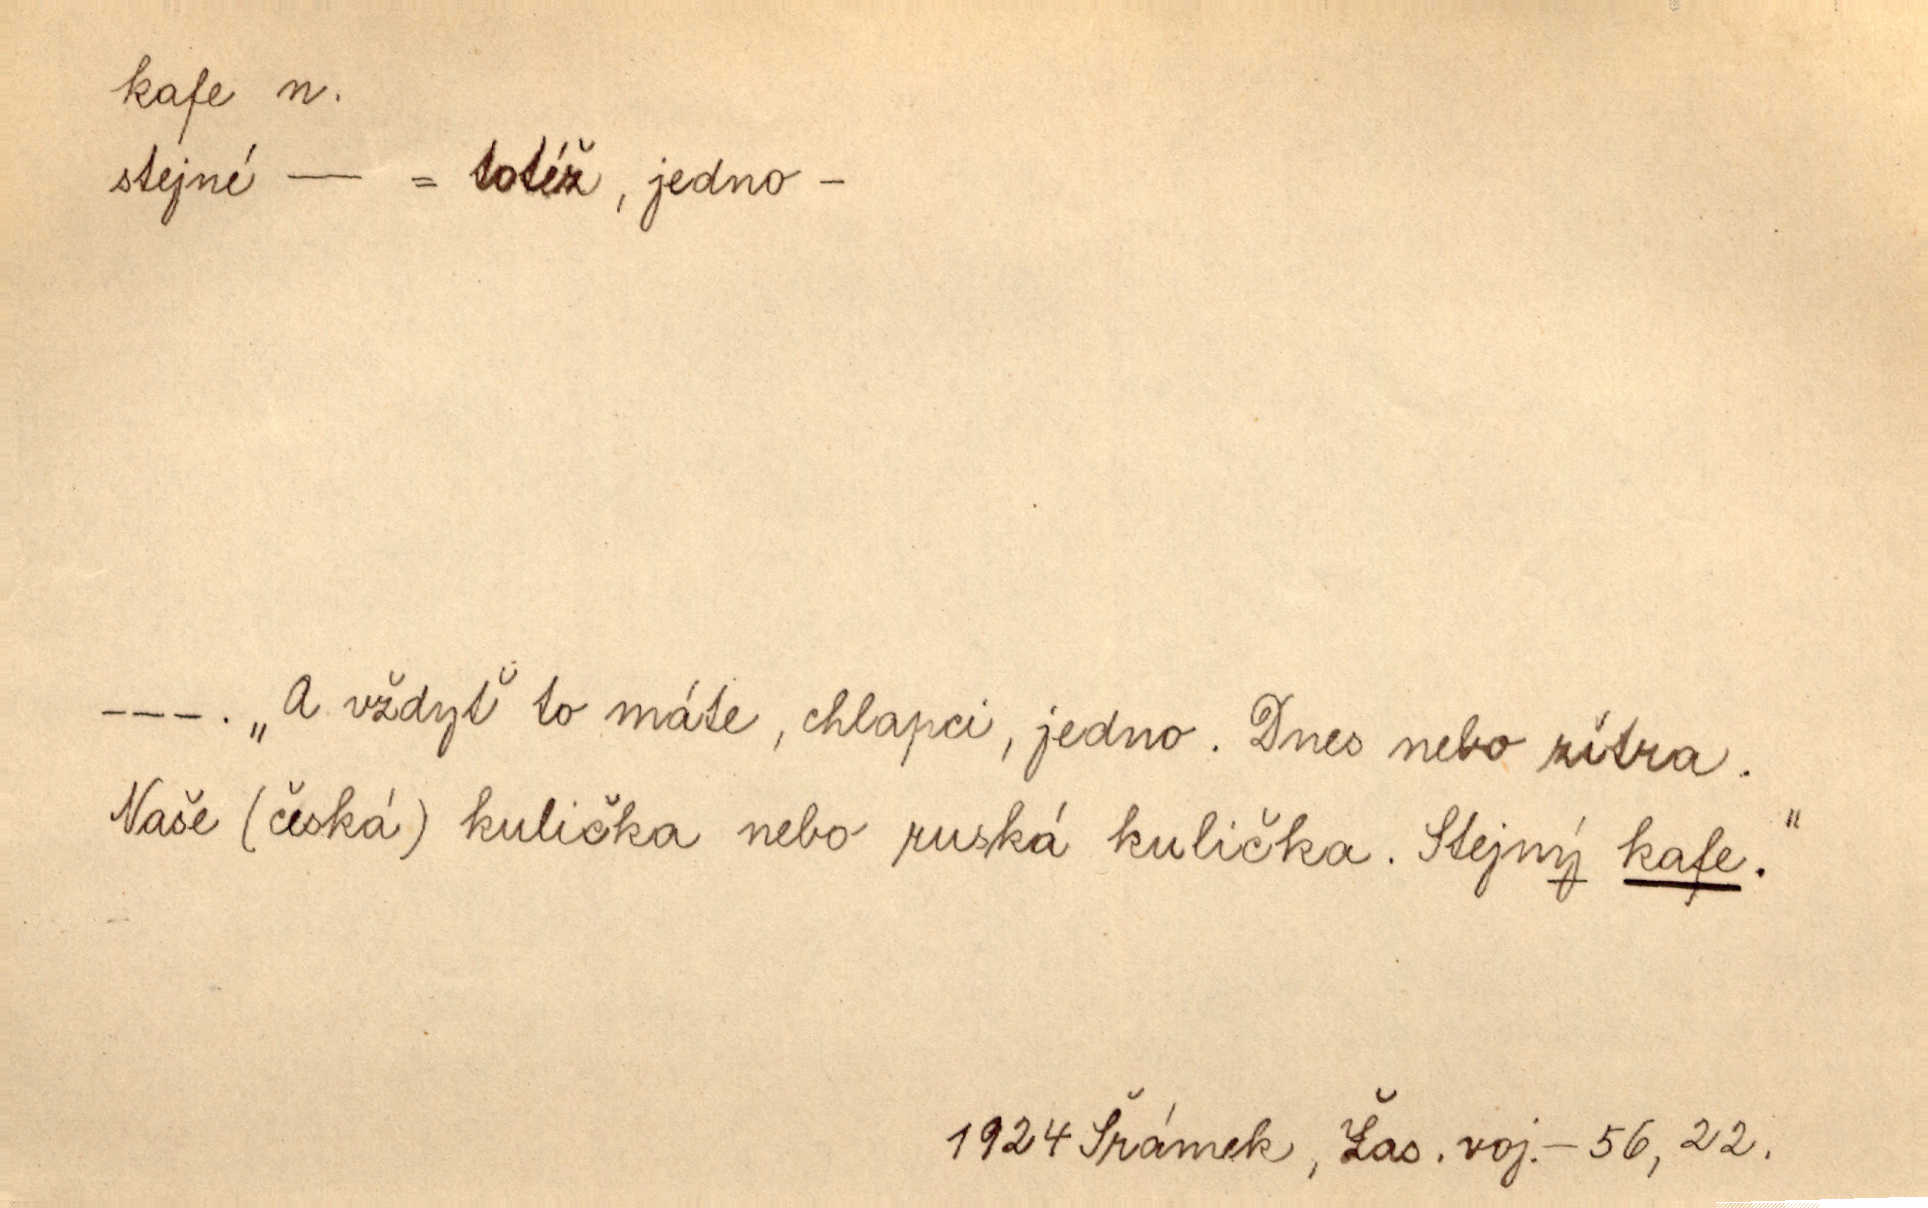 kafe n.
stejné — = totéž, jedno -
---. „A vždyť to máte, chlapci, jedno. Dnes nebo zítra.
Naše (česká) kulička nebo ruská kulička. Stejný kafe."
1924 Šrámek, Žas. voj. - 56, 22.